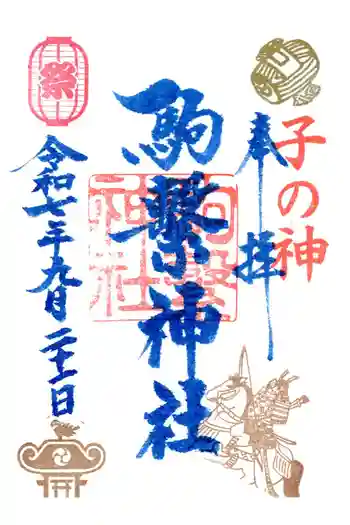 子の神
奉拝
駒繋神社
駒繋神社
祭
令和七年九月二十一日